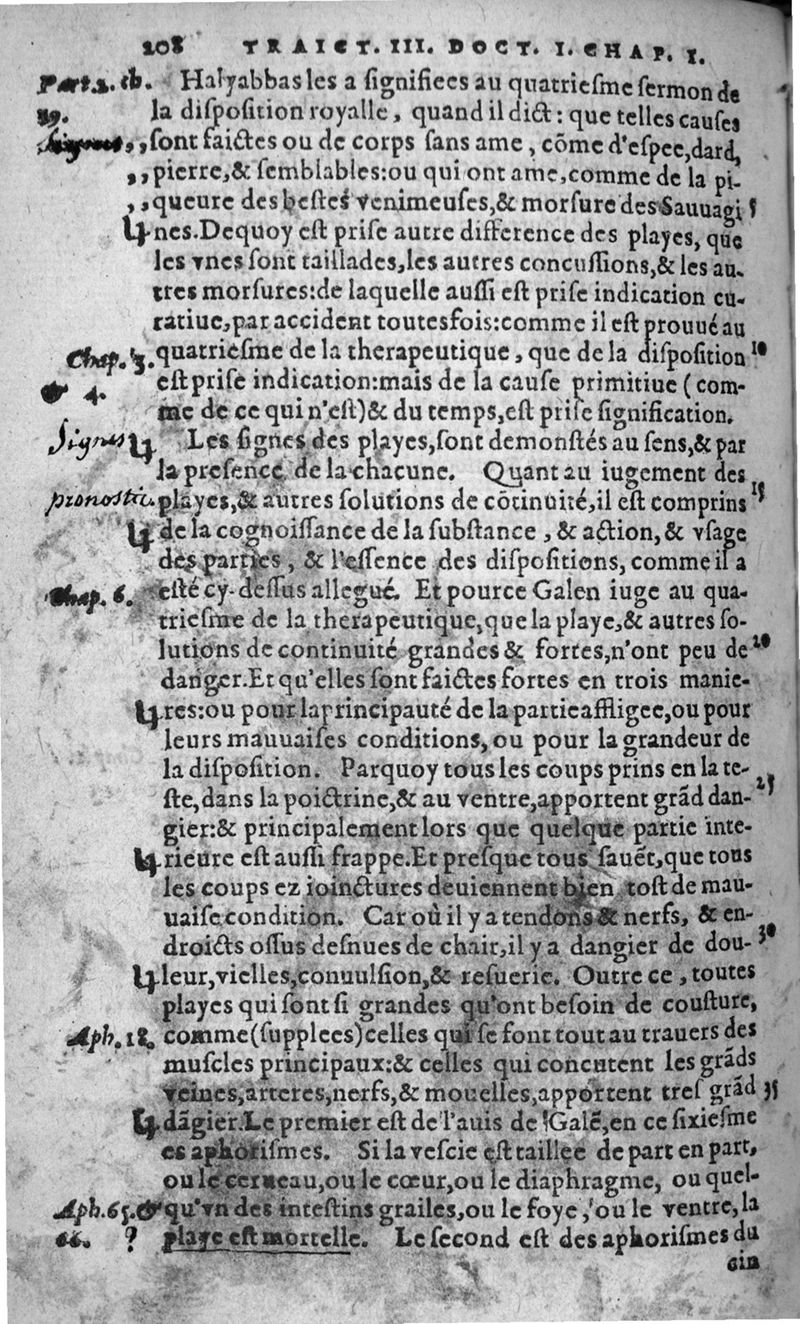 208 TRAICT. III. DOCT. I. CHAP. I.
Part. 2. ch. Halyabbas les a ſignifiees au quatrieſme ſermon de
39. la diſpoſition royalle, quand il dict: que telles cauſes
,,ſont faictes ou de corps ſans ame, cõme d'eſpee, dard,
,,pierre,& ſemblables: ou qui ont ame, comme de la pi-
,,queure des beſtes venimeuſes,& morſure des Sauuagi 5
nes. Dequoy eſt priſe autre difference des playes, que
les vnes ſont taillades, les autres concuſſions,& les au-
tres morſures: de laquelle auſſi eſt priſe indication cu-
ratiue, par accident toutesfois: comme il eſt prouué au
Chap. 3. quatrieſme de la therapeutique, que de la diſpoſition 10
& 4. eſt priſe indication: mais de la cauſe primitiue (com-
me de ce qui n'eſt)& du temps, eſt priſe ſignification.
Signes Les ſignes des playes, ſont demonſtés au ſens,& par
la preſence de la chacune. Quant au iugement des
pronostic. playes,& autres ſolutions de cõtinuité, il eſt comprins 15
de la cognoiſſance de la ſubſtance, & action,& vſage
des parties, & l'eſſence des diſpoſitions, comme il a
Chap. 6. eſté cy-deſſus allegué. Et pource Galen iuge au qua-
trieſme de la therapeutique, que la playe,& autres ſo-
lutions de continuité grandes & fortes, n'ont peu de 20
danger. Et qu'elles ſont faictes fortes en trois manie-
res: ou pour la principauté de la partie affligee, ou pour
leurs mauuaiſes conditions, ou pour la grandeur de
la diſpoſition. Parquoy tous les coups prins en la te-
ſte, dans la poictrine,& au ventre, apportent grãd dan- 25
gier:& principalement lors que quelque partie inte-
rieure eſt auſſi frappe. Et preſque tous ſauẽt, que tous
les coups ez ioinctures deuiennent bien toſt de mau-
uaiſe condition. Car où il y a tendons & nerfs, & en-
droicts oſſus deſnues de chair, il y a dangier de dou- 30
leur, vielles, conuulſion,& reſuerie. Outre ce, toutes
playes qui ſont ſi grandes qu'ont beſoin de couſture,
Aph. 18. comme (ſupplees) celles qui ſe font tout au trauers des
muſcles principaux:& celles qui concutent les grãds
veines, arteres, nerfs,& mouelles, apportent treſ grãd 35
dãgier. Le premier eſt de l'auis de Galẽ, en ce ſixieſme
es aphoriſmes. Si la veſcie eſt taillee de part en part,
ou le cerueau, ou le cœur, ou le diaphragme, ou quel-
Aph. 65. & qu'vn des inteſtins grailes, ou le foye, ou le ventre, la
66. ? playe eſt mortelle. Le ſecond eſt des aphoriſmes du
cin